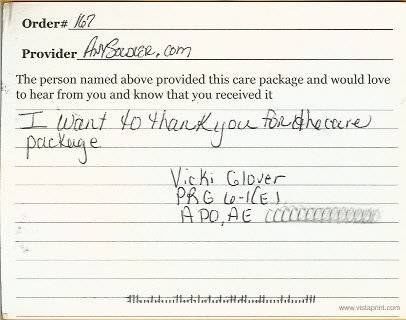 Order# 167
Provider AnySoldier.com
The person named above provided this care package and would love
to hear from you and know that you received it
I want to thank you for the care
package
Vicki Glover
PRG 6-1(E)
APO, AE
www.vistaprint.com